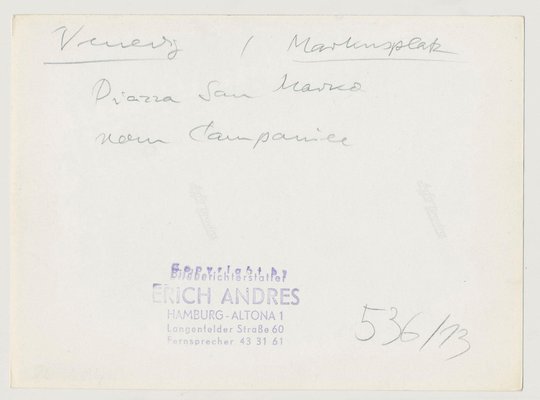 Venedig / Markusplatz
Piazza San Marko
vom Campanile
Copyright by
Bildberichterstatter
ERICH ANDRES
HAMBURG-ALTONA 1
Langenfelder Straße 60
Fernsprecher 43 31 61
536/13